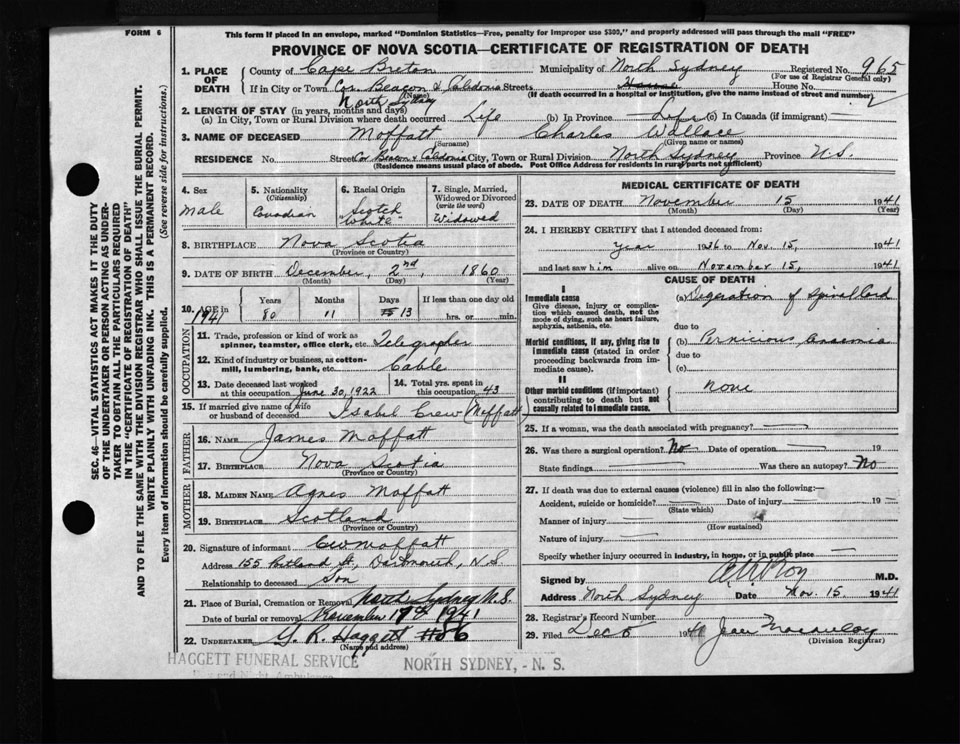 FORM 6
This form if placed in an envelope, marked "Dominion Statistics—Free, penalty for improper use $300," and properly addressed will pass through the mail "FREE"
PROVINCE OF NOVA SCOTIA—CERTIFICATE OF REGISTRATION OF DEATH
1. PLACE OF DEATH
County of Cape Breton Municipality of North Sydney Registered No. 965
(For use of Registrar General only)
If in City or Town Cor. Beacon & Caledonia Street House No.
(Name)
(If death occurred in a hospital or institution, give the name instead of street and number)
North Sydney
2. LENGTH OF STAY (in years, months and days)
(a) In City, Town or Rural Division where death occurred Life (b) In Province Life (c) In Canada (if immigrant) —
3. NAME OF DECEASED Moffatt Charles Wallace
(Surname) (Given name or names)
RESIDENCE No. Street Cor Beacon & Caledonia City, Town or Rural Division North Sydney Province N.S.
(Residence means usual place of abode. Post Office Address for residents in rural parts not sufficient)
4. Sex
Male
5. Nationality
(Citizenship)
Canadian
6. Racial Origin
Scotch
"White"
7. Single, Married, Widowed or Divorced
(write the word)
Widowed
8. BIRTHPLACE Nova Scotia
(Province or Country)
9. DATE OF BIRTH December, 2nd, 1860
(Month) (Day) (Year)
10. AGE in 1941
Years 80
Months 11
Days 13
If less than one day old
hrs. or min.
OCCUPATION
11. Trade, profession or kind of work as spinner, teamster, office clerk, etc. Telegrapher
12. Kind of industry or business, as cotton-mill, lumbering, bank, etc. Cable
13. Date deceased last worked at this occupation June 30, 1922
14. Total yrs. spent in this occupation 43
15. If married give name of wife or husband of deceased Isabel Crew (Moffatt)
FATHER
16. NAME James Moffatt
17. BIRTHPLACE Nova Scotia
(Province or Country)
MOTHER
18. MAIDEN NAME Agnes Moffatt
19. BIRTHPLACE Scotland
(Province or Country)
20. Signature of informant Geo Moffatt
Address 155 Portland St., Dartmouth, N.S.
Relationship to deceased Son
21. Place of Burial, Cremation or Removal North Sydney N.S.
Date of burial or removal November 17th 1941
22. UNDERTAKER G. R. Haggett #56
(Name and address)
HAGGETT FUNERAL SERVICE NORTH SYDNEY, - N. S.
Day and Night Ambulance
MEDICAL CERTIFICATE OF DEATH
23. DATE OF DEATH November 15 1941
(Month) (Day) (Year)
24. I HEREBY CERTIFY that I attended deceased from:
Year 1936 to Nov. 15, 1941
and last saw him alive on November 15, 1941
CAUSE OF DEATH
I
Immediate cause
Give disease, injury or complication which caused death, not the mode of dying, such as heart failure, asphyxia, asthenia, etc.
(a) Degeration of Spinal Cord
due to
Morbid conditions, if any, giving rise to immediate cause (stated in order proceeding backwards from immediate cause).
(b) Pernicious Anaemia
due to
(c)
II
Other morbid conditions (if important) contributing to death but not causally related to immediate cause.
None
25. If a woman, was the death associated with pregnancy? —
26. Was there a surgical operation? No Date of operation — 19
State findings — Was there an autopsy? No
27. If death was due to external causes (violence) fill in also the following:—
Accident, suicide or homicide? — Date of injury — 19 —
(State which)
Manner of injury —
(How sustained)
Nature of injury —
Specify whether injury occurred in industry, in home, or in public place —
Signed by M.D.
Address North Sydney Date Nov. 15 1941
28. Registrar's Record Number
29. Filed Dec 8 1941
(Division Registrar)
SEC. 46—VITAL STATISTICS ACT MAKES IT THE DUTY OF THE UNDERTAKER OR PERSON ACTING AS UNDERTAKER TO OBTAIN ALL THE PARTICULARS REQUIRED IN THE "CERTIFICATE OF REGISTRATION OF DEATH" AND TO FILE THE SAME WITH THE DIVISION REGISTRAR WHO SHALL ISSUE THE BURIAL PERMIT.
WRITE PLAINLY WITH UNFADING INK. THIS IS A PERMANENT RECORD.
Every item of information should be carefully supplied. (See reverse side for instructions.)